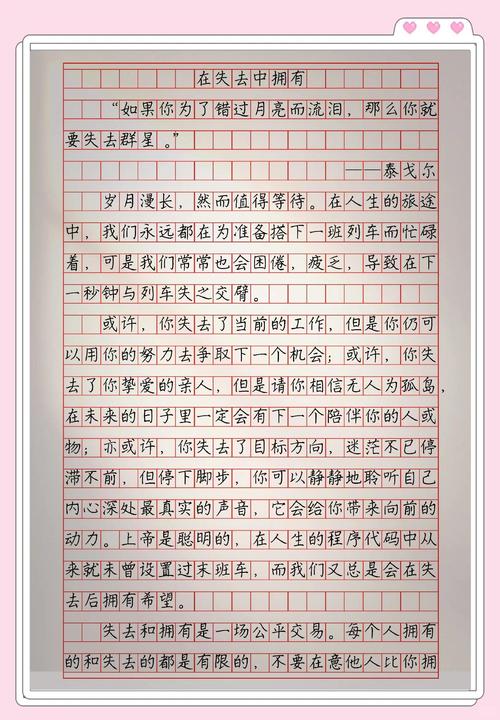 在失去中拥有
“如果你为了错过月亮而流泪，那么你就
要失去群星。”
——泰戈尔
岁月漫长，然而值得等待。在人生的旅途
中，我们永远都在为准备搭下一班列车而忙碌
着，可是我们常常也会困倦，疲乏，导致在下
一秒钟与列车失之交臂。
或许，你失去了当前的工作，但是你仍可
以用你的努力去争取下一个机会；或许，你失
去了你挚爱的亲人，但是请你相信无人为孤岛，
在未来的日子里一定会有下一个陪伴你的人或
物；亦或许，你失去了目标方向，迷茫不已停
滞不前，但停下脚步，你可以静静地聆听自己
内心深处最真实的声音，它会给你带来向前的
动力。上帝是聪明的，在人生的程序代码中从
来就未曾设置过末班车，而我们又总是会在失
去后拥有希望。
失去和拥有是一场公平交易。每个人拥有
的和失去的都是有限的，不要在意他人比你拥